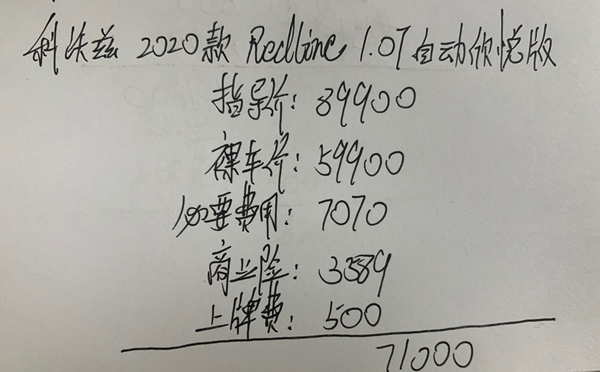 科沃兹 2020款 Redline 1.0T自动欣悦版
指导价: 89900
裸车价: 59900
必要费用: 7070
商业险: 3589
上牌费: 500
71000